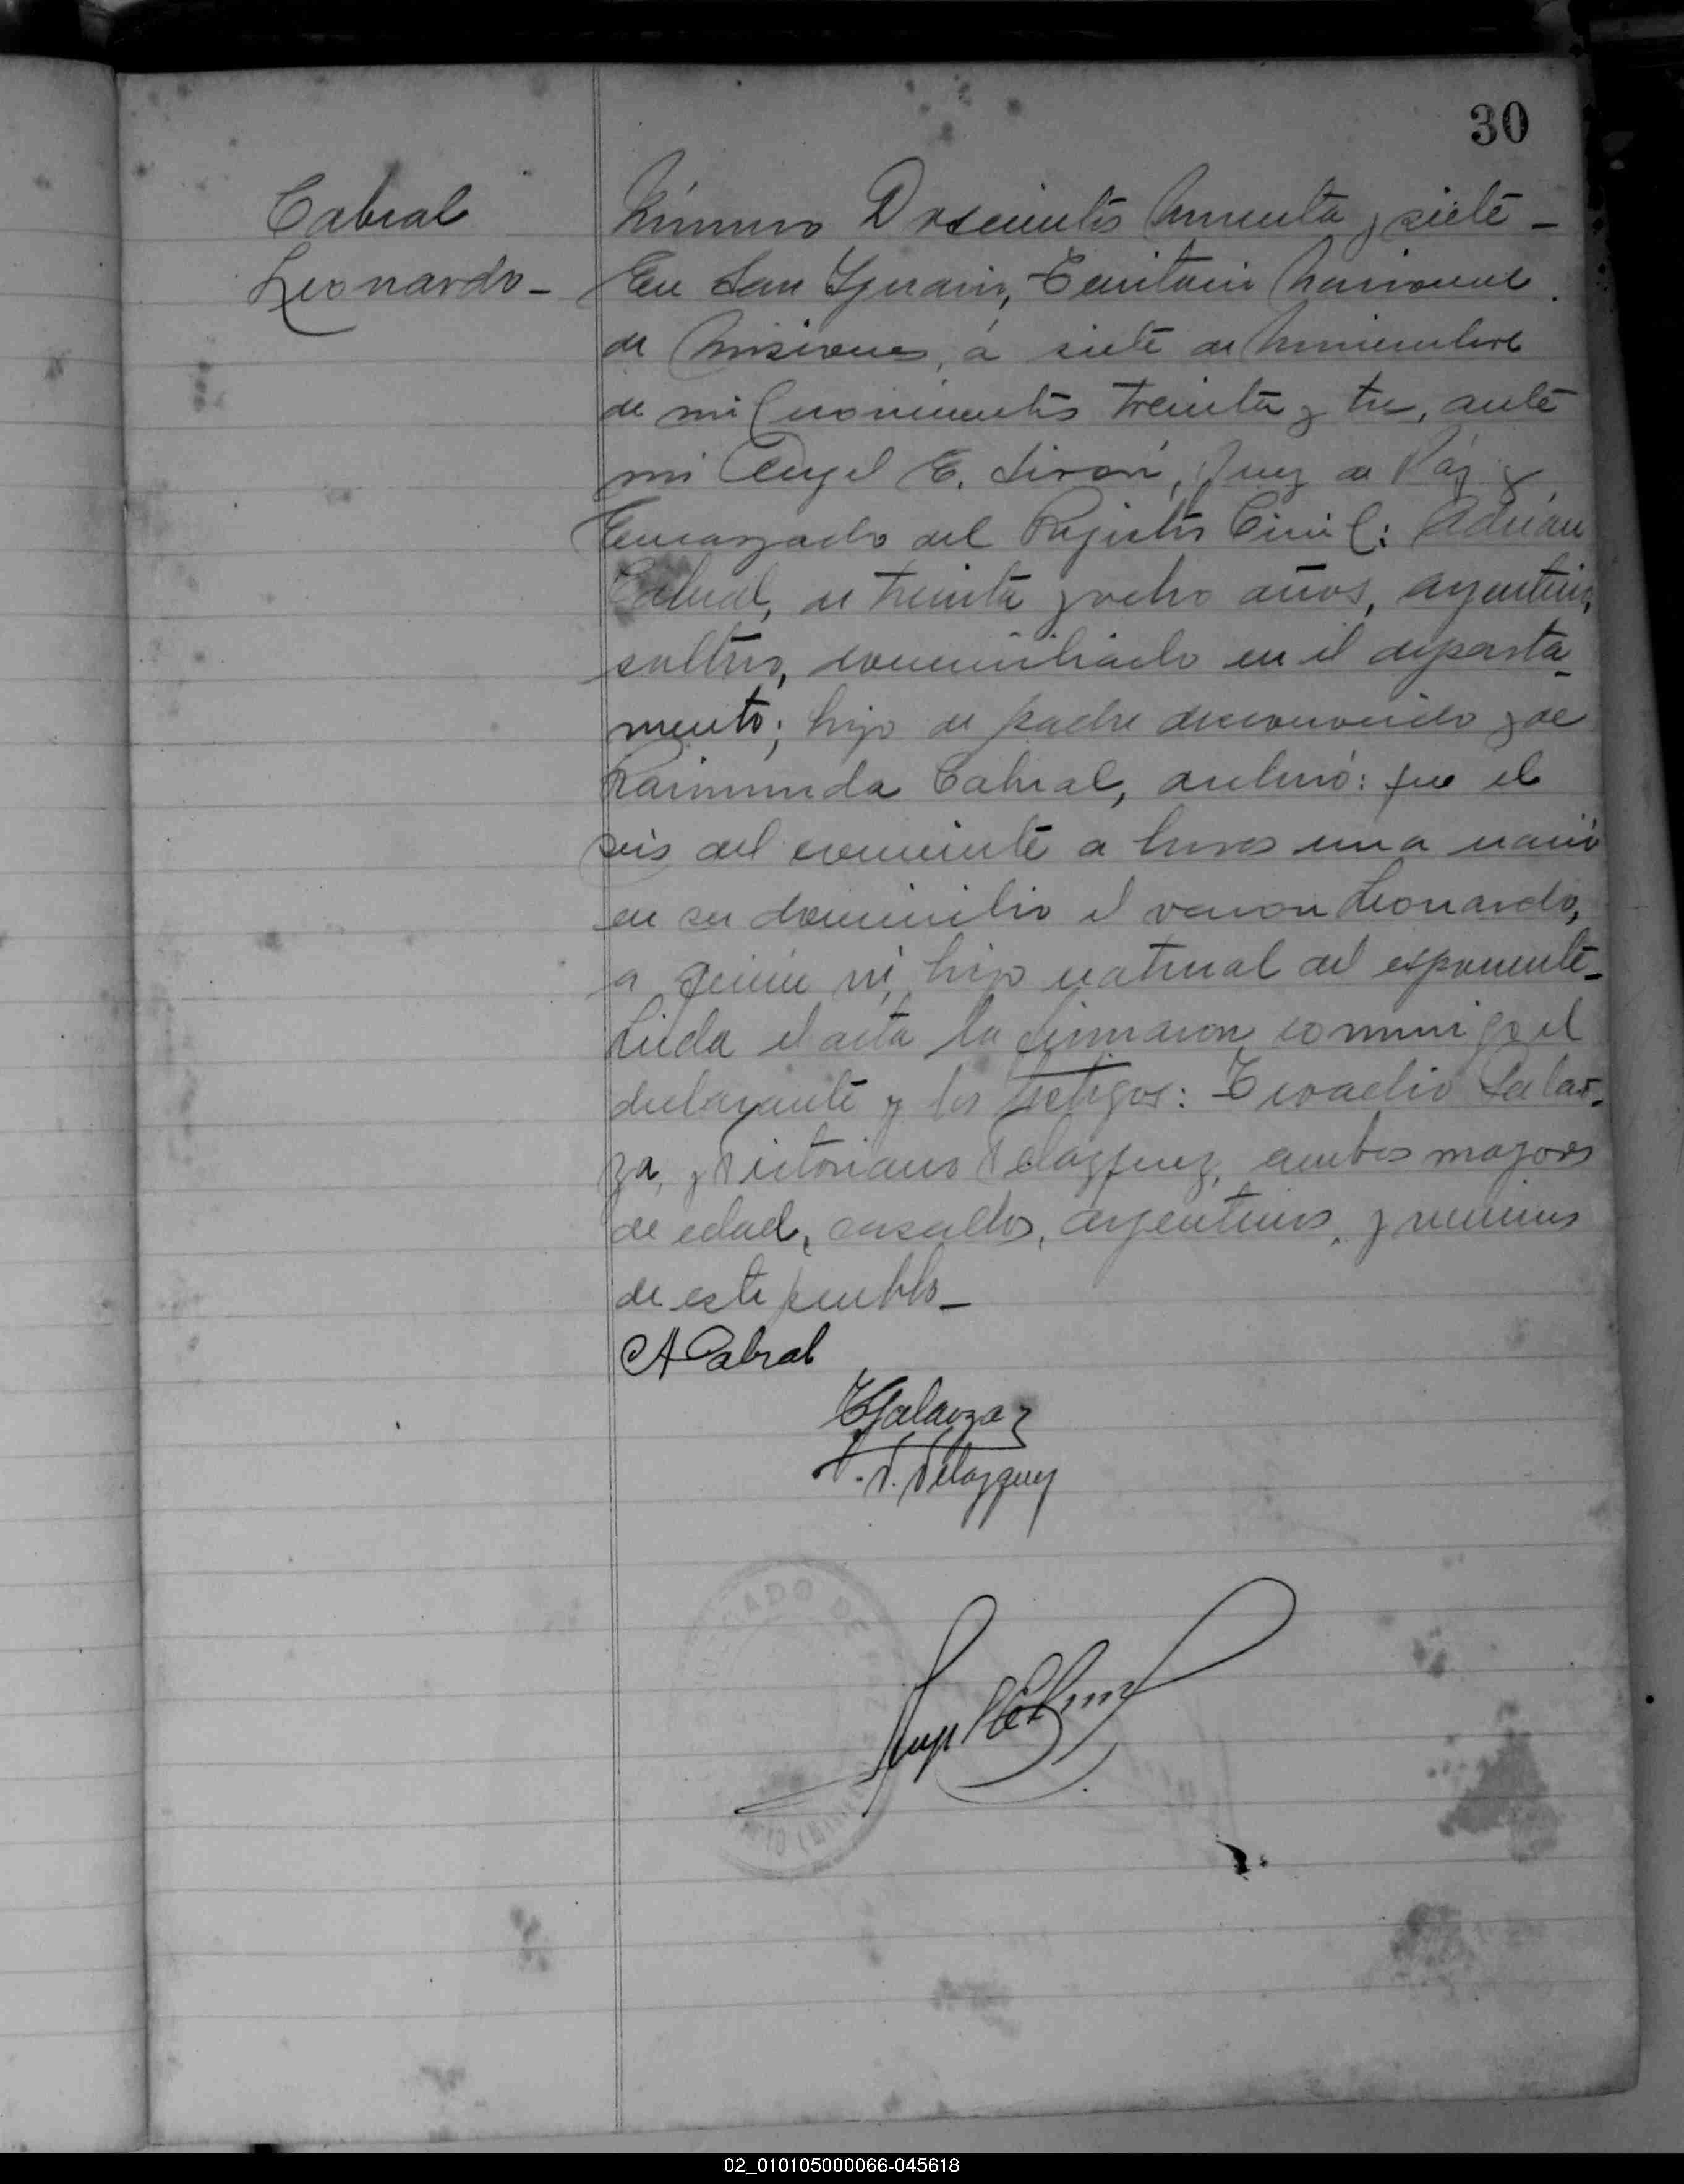 30
Cabral
Leonardo_
Número Doscientos Noventa y siete_
En San Ignacio, Territorio Nacional
de Misiones, á siete de Noviembre
de mil novecientos treinta y tres, ante
mi Angel E. Juez de Páz y
Encargado del Registro Civil: Adrián
Cabral, de treinta y ocho años, argentino,
soltero, domiciliado en el departa-
mento; hijo de padre desconocido y de
Raimunda Cabral, declaró: que el
seis del corriente a horas una nació
en su domicilio el varon Leonardo,
a quien vi, hijo natural del esponente_
Leida el acta la firmaron conmigo el
declarante y los testigos: Galar-
za, y Victoriano Velazquez, ambos mayores
de edad, casados, argentinos, y vecinos
de este pueblo_
A Cabral
Galarza
V. V. Velazquez
JUZGADO DE PAZ